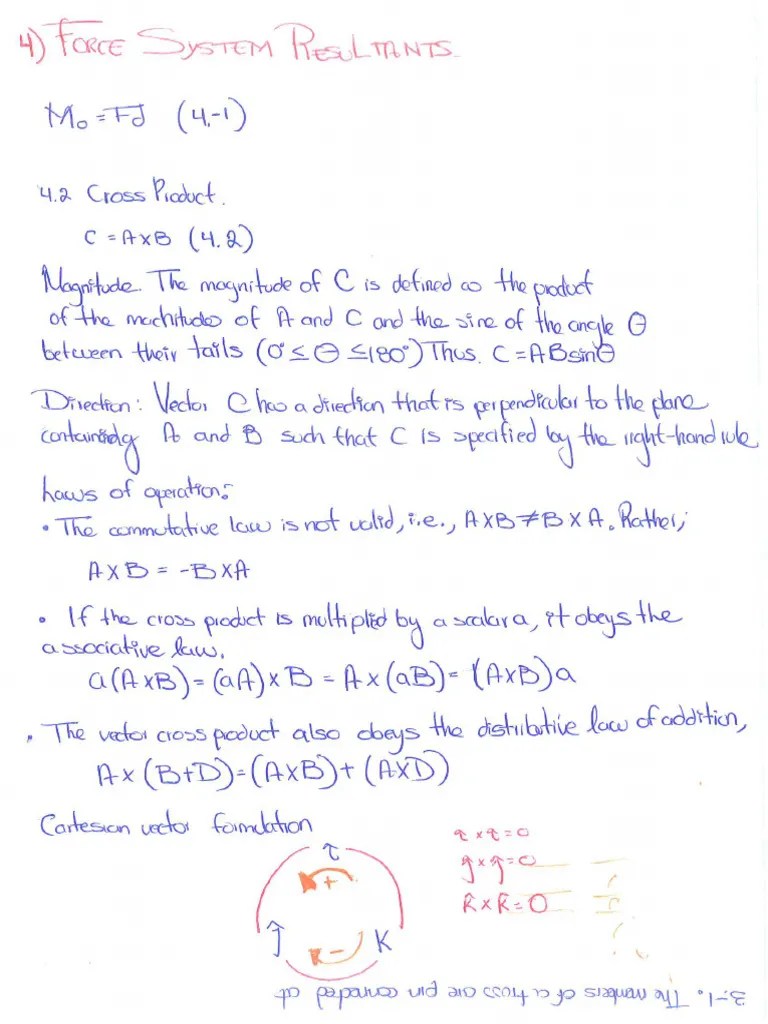 4) FORCE SYSTEM RESULTANTS.
Mo = FJ (4.-1)
4.2 Cross Product.
C = A×B (4.2)
Magnitude. The magnitude of C is defined as the product
of the machitudes of A and C and the sine of the angle θ
between their tails (0° ≤ θ ≤ 180°) Thus. C = AB sinθ
Direction: Vector C has a direction that is perpendicular to the plane
containing A and B such that C is specified by the right-hand rule
Laws of operation:
• The commutative law is not valid, i.e., A×B ≠ B×A. Rather;
A×B = -B×A
• If the cross product is multiplied by a scalar a, it obeys the
associative law.
a(A×B) = (aA)×B = A×(aB) = (A×B)a
• The vector cross product also obeys the distributive law of addition,
A×(B+D) = (A×B) + (A×D)
Cartesian vector formulation
î × î = 0
ĵ × ĵ = 0
k̂ × k̂ = 0
î
+
ĵ - K
3.-1. The members of a truss are pin connected at